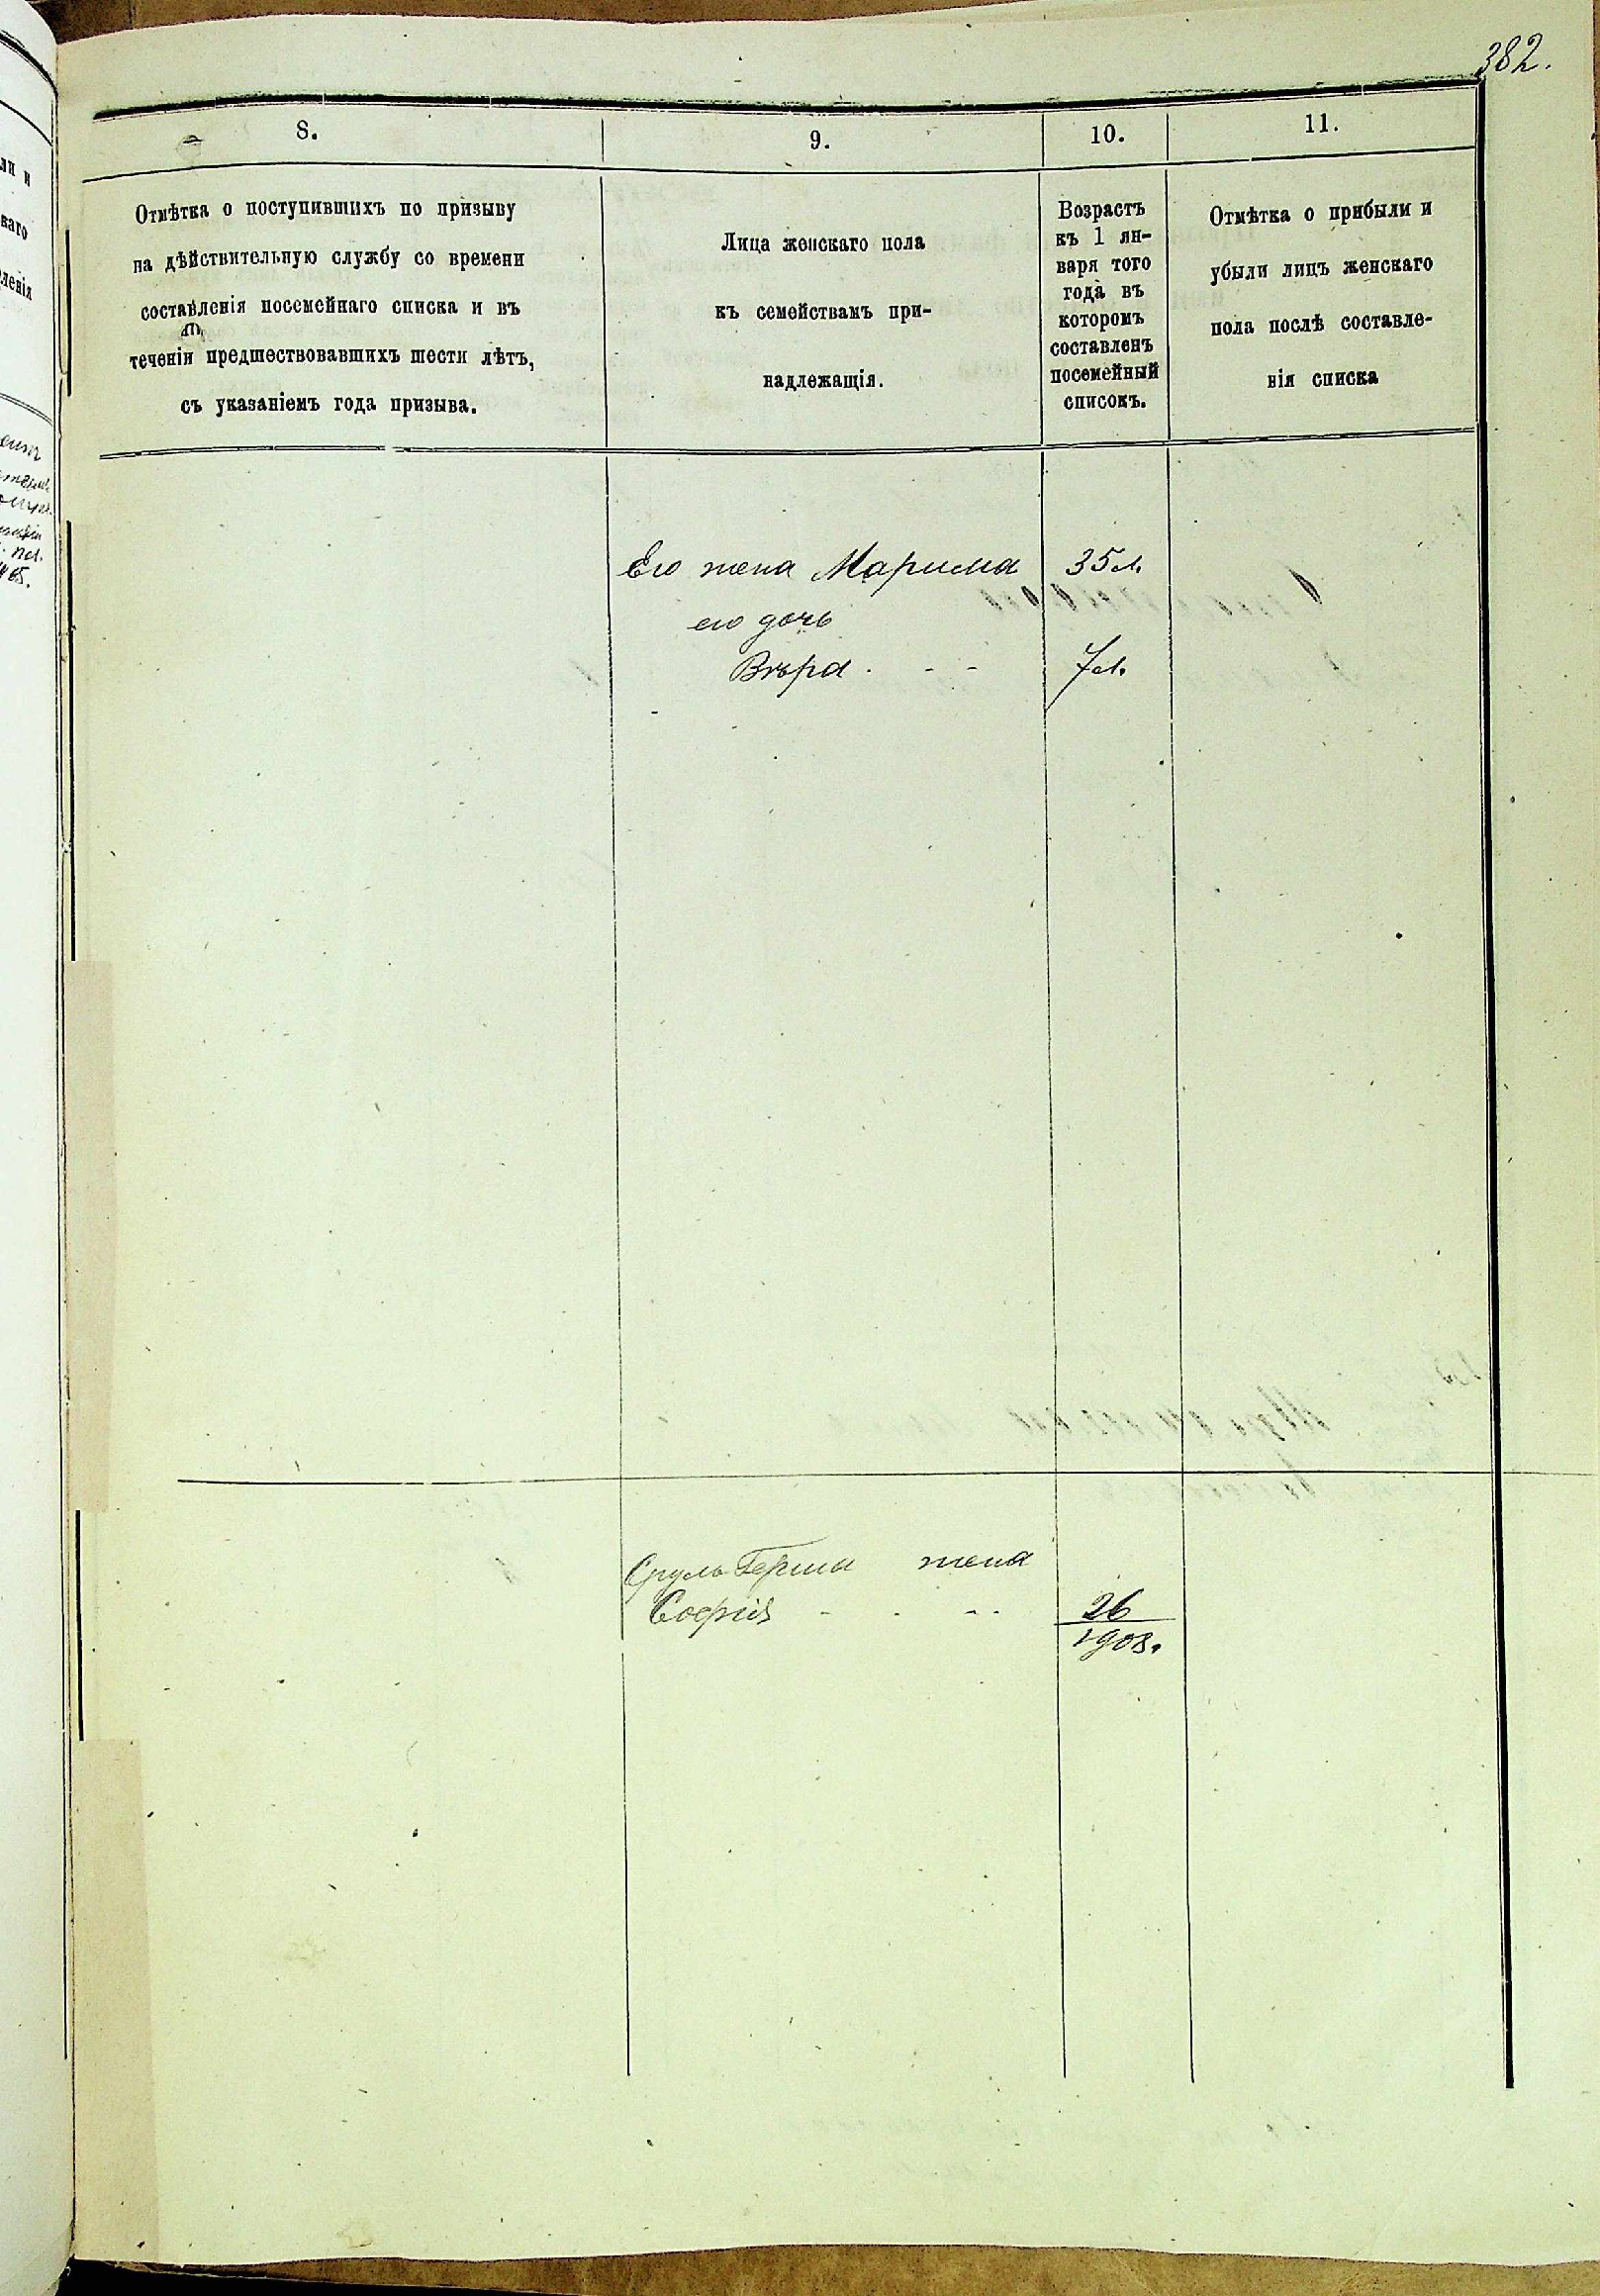 382.
8.
9.
10.
11.
Отмѣтка о поступившихъ по призыву
на дѣйствительную службу со времени
составленія посемейнаго списка и въ
теченіи предшествовавшихъ шести лѣтъ,
съ указаніемъ года призыва.
Лица женскаго пола
къ семействамъ при-
надлежащія.
Возрастъ
къ 1 ян-
варя того
года въ
котормъ
составленъ
посемейный
списокъ.
Отмѣтка о прибыли и
убыли лицъ женскаго
пола послѣ составле-
нія списка
Его жена Марима 35 л.
его дочь
Вѣра . - - 7 л.
Сруль Герша жена
Софія - . - - 26
1903.